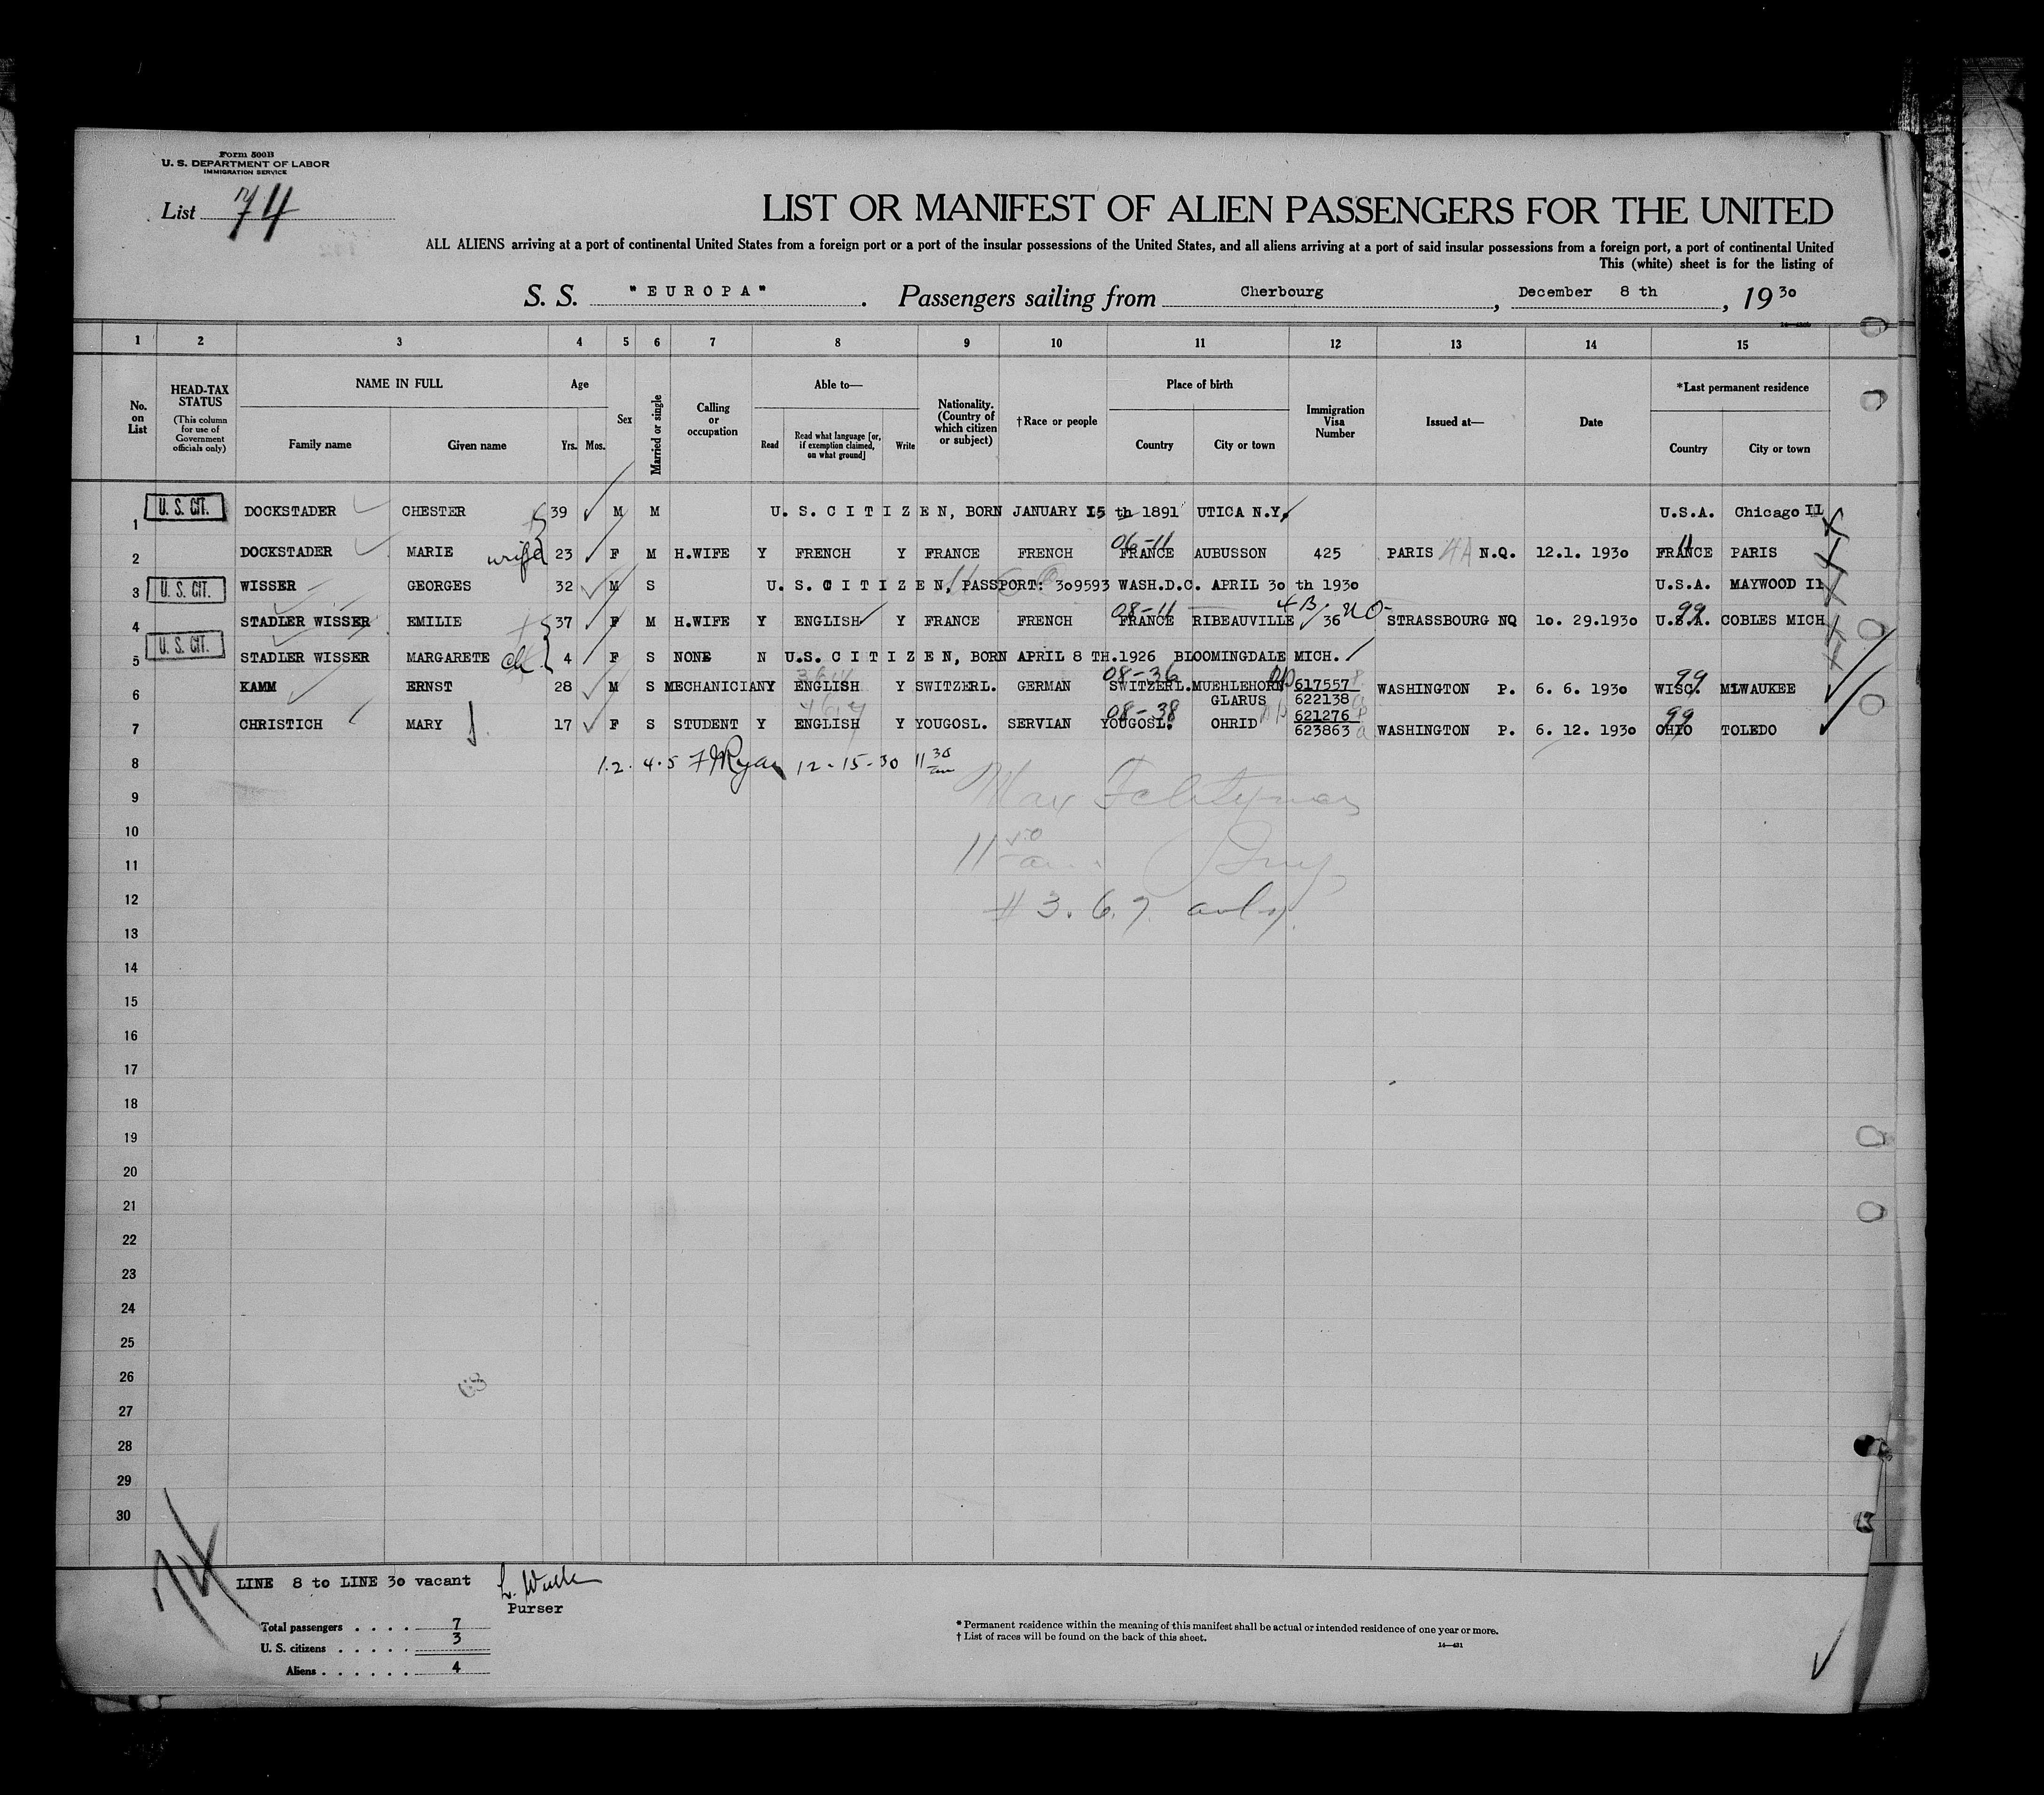 Form 500B
U. S. DEPARTMENT OF LABOR
IMMIGRATION SERVICE
List 74
LIST OR MANIFEST OF ALIEN PASSENGERS FOR THE UNITED
ALL ALIENS arriving at a port of continental United States from a foreign port or a port of the insular possessions of the United States, and all aliens arriving at a port of said insular possessions from a foreign port, a port of continental United
This (white) sheet is for the listing of
S. S. "EUROPA". Passengers sailing from Cherbourg, December 8 th, 1930
1 2 3 4 5 6 7 8 9 10 11 12 13 14 15
No. on List
HEAD-TAX STATUS (This column for use of Government officials only)
NAME IN FULL Family name Given name
Age Yrs. Mos.
Sex
Married or single
Calling or occupation
Able to— Read Read what language [or, if exemption claimed, on what ground] Write
Nationality. (Country of which citizen or subject)
†Race or people
Place of birth Country City or town
Immigration Visa Number
Issued at—
Date
*Last permanent residence Country City or town
1 U. S. CIT. DOCKSTADER CHESTER 39 M M U. S. CITIZEN, BORN JANUARY 15 th 1891 UTICA N.Y. U.S.A. Chicago Il
2 DOCKSTADER MARIE wife 23 F M H.WIFE Y FRENCH Y FRANCE FRENCH 06-11 FRANCE AUBUSSON 425 PARIS N.Q. 12.1. 1930 11 FRANCE PARIS
3 U. S. CIT. WISSER GEORGES 32 M S U. S. CITIZEN, PASSPORT: 309593 WASH.D.C. APRIL 30 th 1930 U.S.A. MAYWOOD Il
4 STADLER WISSER EMILIE 37 F M H.WIFE Y ENGLISH Y FRANCE FRENCH 08-11 FRANCE RIBEAUVILLE 4B 36 STRASSBOURG NQ 10. 29.1930 99 U.S.A. COBLES MICH
5 U. S. CIT. STADLER WISSER MARGARETE ch 4 F S NONE N U.S. CITIZEN, BORN APRIL 8 TH.1926 BLOOMINGDALE MICH.
6 KAMM ERNST 28 M S MECHANICIAN Y ENGLISH Y SWITZERL. GERMAN 08-36 SWITZERL. MUEHLEHORN GLARUS 617557 622138 WASHINGTON P. 6. 6. 1930 99 WISC. MILWAUKEE
7 CHRISTICH MARY 17 F S STUDENT Y ENGLISH Y YOUGOSL. SERVIAN 08-38 YOUGOSL. OHRID 621276 623863 WASHINGTON P. 6. 12. 1930 99 OHIO TOLEDO
8 1.2. 4.5 Ryan 12-15-30 11 30 am
9 Max
10
11 11 50 am
12 # 3. 6. 7. only.
13
14
15
16
17
18
19
20
21
22
23
24
25
26
27
28
29
30
74
LINE 8 to LINE 30 vacant
Purser
Total passengers . . . . 7
U. S. citizens . . . . . 3
Aliens . . . . . . 4
* Permanent residence within the meaning of this manifest shall be actual or intended residence of one year or more.
† List of races will be found on the back of this sheet.